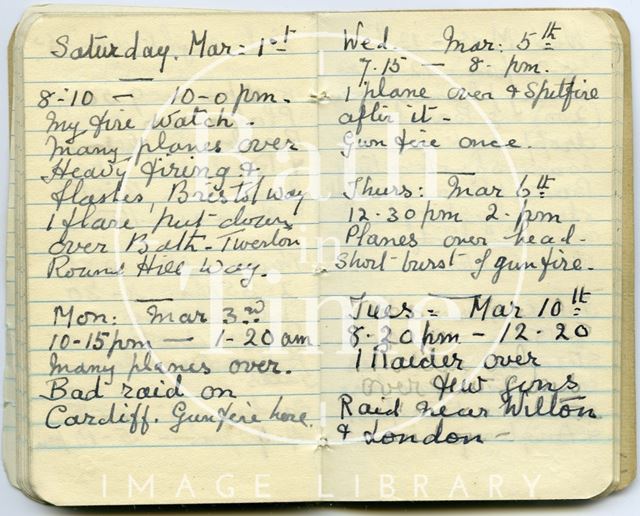 Saturday. Mar: 1st
8-10 — 10-0 pm.
My fire Watch.
Many planes over
Heavy firing &
flashes, Bristol way
1 flare put down
over Bath - Twerton
Round Hill Way.
Mon: Mar 3rd
10-15pm — 1-20 am
Many planes over.
Bad raid on
Cardiff. Gunfire here.
Wed. Mar: 5th
7.15 — 8- pm.
1 plane over & Spitfire
after it -
Gun fire once.
Thurs: Mar 6th
12-30pm 2-pm
Planes over head-
Short burst of gunfire.
Tues = Mar 10th
8-20pm - 12-20
1 Raider over
over few guns
Raid near Wilton
& London -
Bath
in
Time
IMAGE LIBRARY